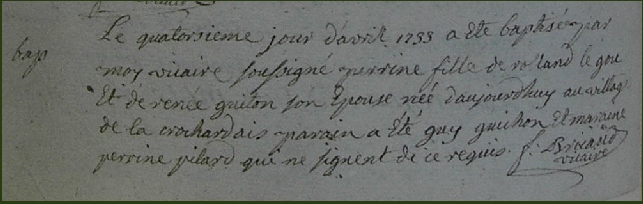 Le quatorsieme jour d'avril 1733 a eté baptisée par
bap moy vicaire soussigné perrine fille de rolland le gou
Et de renée guiton son Epouse née d'aujourdhuy au village
de la crohardais parain a Eté guy guihon Et maraine
perrine pilard qui ne signent de ce requis. f. Bricauld
vicaire